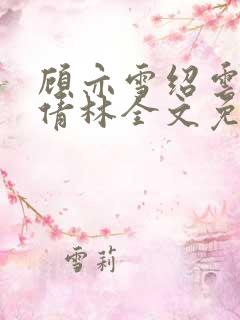 顾亦雪绍雲
倩林全文免
雪莉